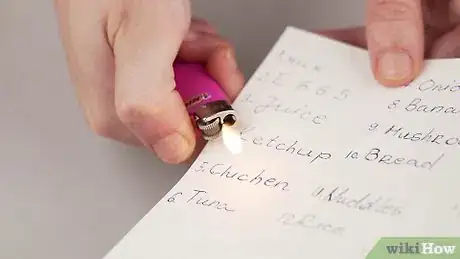 1. Milk
2. E G G S
3. Juice
Ketchup
5. Chicken
6. Tuna
8. Bana
9. Mushro
10. Bread
11. Nuddles
wikiHow